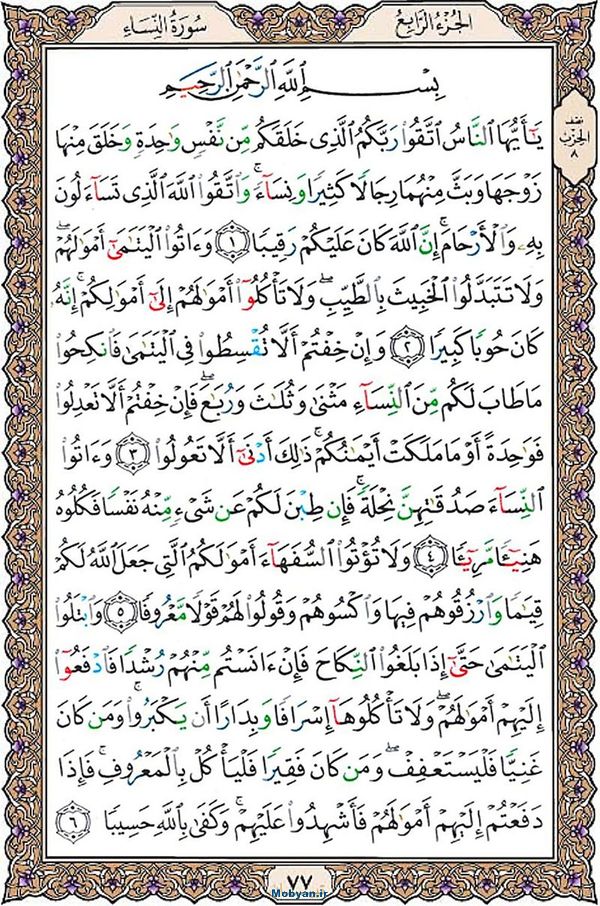 سُورَةُ النِّسَاءِ الجُزْءُ الرَّابِعُ
نصف
الحِزْب
٨
بِسْمِ اللَّهِ الرَّحْمَٰنِ الرَّحِيمِ
يَٰٓأَيُّهَا ٱلنَّاسُ ٱتَّقُوا۟ رَبَّكُمُ ٱلَّذِى خَلَقَكُم مِّن نَّفْسٍ وَٰحِدَةٍ وَخَلَقَ مِنْهَا
زَوْجَهَا وَبَثَّ مِنْهُمَا رِجَالًا كَثِيرًا وَنِسَآءً ۚ وَٱتَّقُوا۟ ٱللَّهَ ٱلَّذِى تَسَآءَلُونَ
بِهِۦ وَٱلْأَرْحَامَ ۚ إِنَّ ٱللَّهَ كَانَ عَلَيْكُمْ رَقِيبًا ١ وَءَاتُوا۟ ٱلْيَتَٰمَىٰٓ أَمْوَٰلَهُمْ ۖ
وَلَا تَتَبَدَّلُوا۟ ٱلْخَبِيثَ بِٱلطَّيِّبِ ۖ وَلَا تَأْكُلُوٓا۟ أَمْوَٰلَهُمْ إِلَىٰٓ أَمْوَٰلِكُمْ ۚ إِنَّهُۥ
كَانَ حُوبًا كَبِيرًا ٢ وَإِنْ خِفْتُمْ أَلَّا تُقْسِطُوا۟ فِى ٱلْيَتَٰمَىٰ فَٱنكِحُوا۟
مَا طَابَ لَكُم مِّنَ ٱلنِّسَآءِ مَثْنَىٰ وَثُلَٰثَ وَرُبَٰعَ ۖ فَإِنْ خِفْتُمْ أَلَّا تَعْدِلُوا۟
فَوَٰحِدَةً أَوْ مَا مَلَكَتْ أَيْمَٰنُكُمْ ۚ ذَٰلِكَ أَدْنَىٰٓ أَلَّا تَعُولُوا۟ ٣ وَءَاتُوا۟
ٱلنِّسَآءَ صَدُقَٰتِهِنَّ نِحْلَةً ۚ فَإِن طِبْنَ لَكُمْ عَن شَىْءٍ مِّنْهُ نَفْسًا فَكُلُوهُ
هَنِيٓـًٔا مَّرِيٓـًٔا ٤ وَلَا تُؤْتُوا۟ ٱلسُّفَهَآءَ أَمْوَٰلَكُمُ ٱلَّتِى جَعَلَ ٱللَّهُ لَكُمْ
قِيَٰمًا وَٱرْزُقُوهُمْ فِيهَا وَٱكْسُوهُمْ وَقُولُوا۟ لَهُمْ قَوْلًا مَّعْرُوفًا ٥ وَٱبْتَلُوا۟
ٱلْيَتَٰمَىٰ حَتَّىٰٓ إِذَا بَلَغُوا۟ ٱلنِّكَاحَ فَإِنْ ءَانَسْتُم مِّنْهُمْ رُشْدًا فَٱدْفَعُوٓا۟
إِلَيْهِمْ أَمْوَٰلَهُمْ ۖ وَلَا تَأْكُلُوهَآ إِسْرَافًا وَبِدَارًا أَن يَكْبَرُوا۟ ۚ وَمَن كَانَ
غَنِيًّا فَلْيَسْتَعْفِفْ ۖ وَمَن كَانَ فَقِيرًا فَلْيَأْكُلْ بِٱلْمَعْرُوفِ ۚ فَإِذَا
دَفَعْتُمْ إِلَيْهِمْ أَمْوَٰلَهُمْ فَأَشْهِدُوا۟ عَلَيْهِمْ ۚ وَكَفَىٰ بِٱللَّهِ حَسِيبًا ٦
٧٧
Mobyan.ir